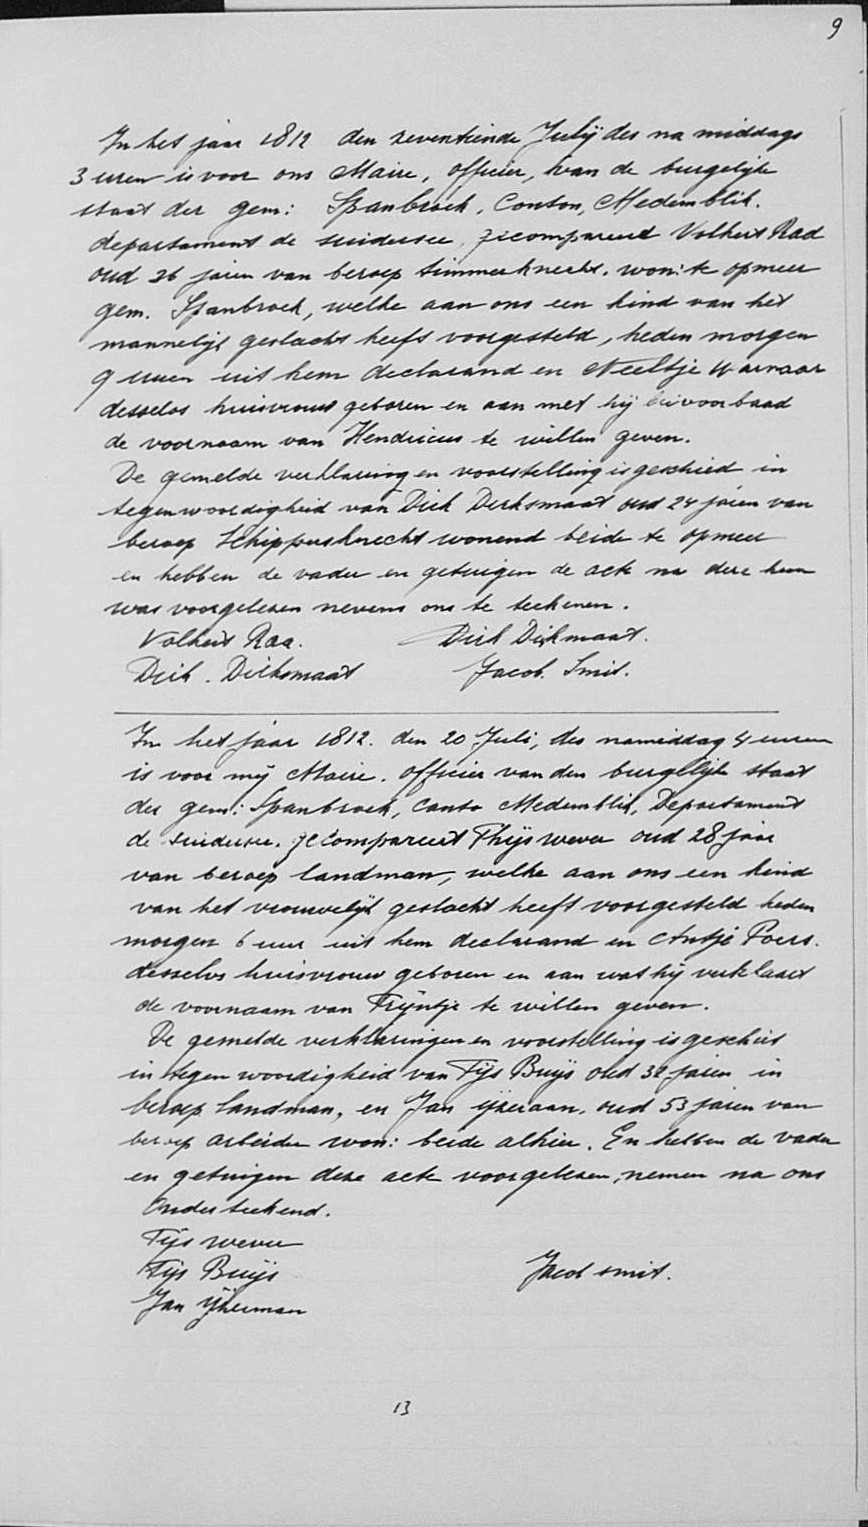 9
In het jaar 1812 den zeventiende Julij des na middags
3 uren is voor ons Maire, officier, van de burgelijke
staat der gem: Spanbroek, Conton, Medemblik.
departament de suidersee, gecompareerd Volkert Raa
oud 26 jaren van beroep timmerknecht. won: te opmeer
gem. Spanbroek, welke aan ons een kind van het
mannelijk geslacht heeft voorgesteld, heden morgen
9 uuen uit hem declarand en Neeltje Warnaar
desselvs huisvrouw geboren en aan met hij
de voornaam van Hendricus te willen geven.
De gemelde verklaring en voorstelling is geschied in
tegenwoordigheid van Dirk Derksmaat oud 24 jaren van
beroep Schippersknecht wonend beide te opmeer
en hebben de vader en getuigen de acte na deze hun
was voorgelesen nevens ons te teekenen.
Volkert Raa. Dirk Dirkmaat.
Dirk. Dirksmaat Jacob Smit.
In het jaar 1812. den 20 Juli, des namiddag 4 uuren
is voor mij Maire. officier van den burgelijke staat
der gem: Spanbroek, Canto Medemblik, Departament
de suidersee. gecompareert Thijs wever oud 28 jaar
van beroep landman, welke aan ons een kind
van het vrouwelijk geslacht heeft voorgesteld heden
morgen 6 uur uit hem declarand en Antje Poers.
desselvs huisvrouw geboren en aan wat hij verklaart
de voornaam van Trijntje te willen geven.
De gemelde verklaringen en voorstelling is gescheit
in tegenwoordigheid van Tijs Buijs oud 32 jaren in
beroep landman, en Jan oud 53 jaren van
beroep arbeider won: beide alhier. En hebben de vader
en getuigen deze acte voorgelesen, nemen na ons
Onderteekend.
Tijs wever
Tijs Buijs Jacob smit.
Jan Ijkerman
13